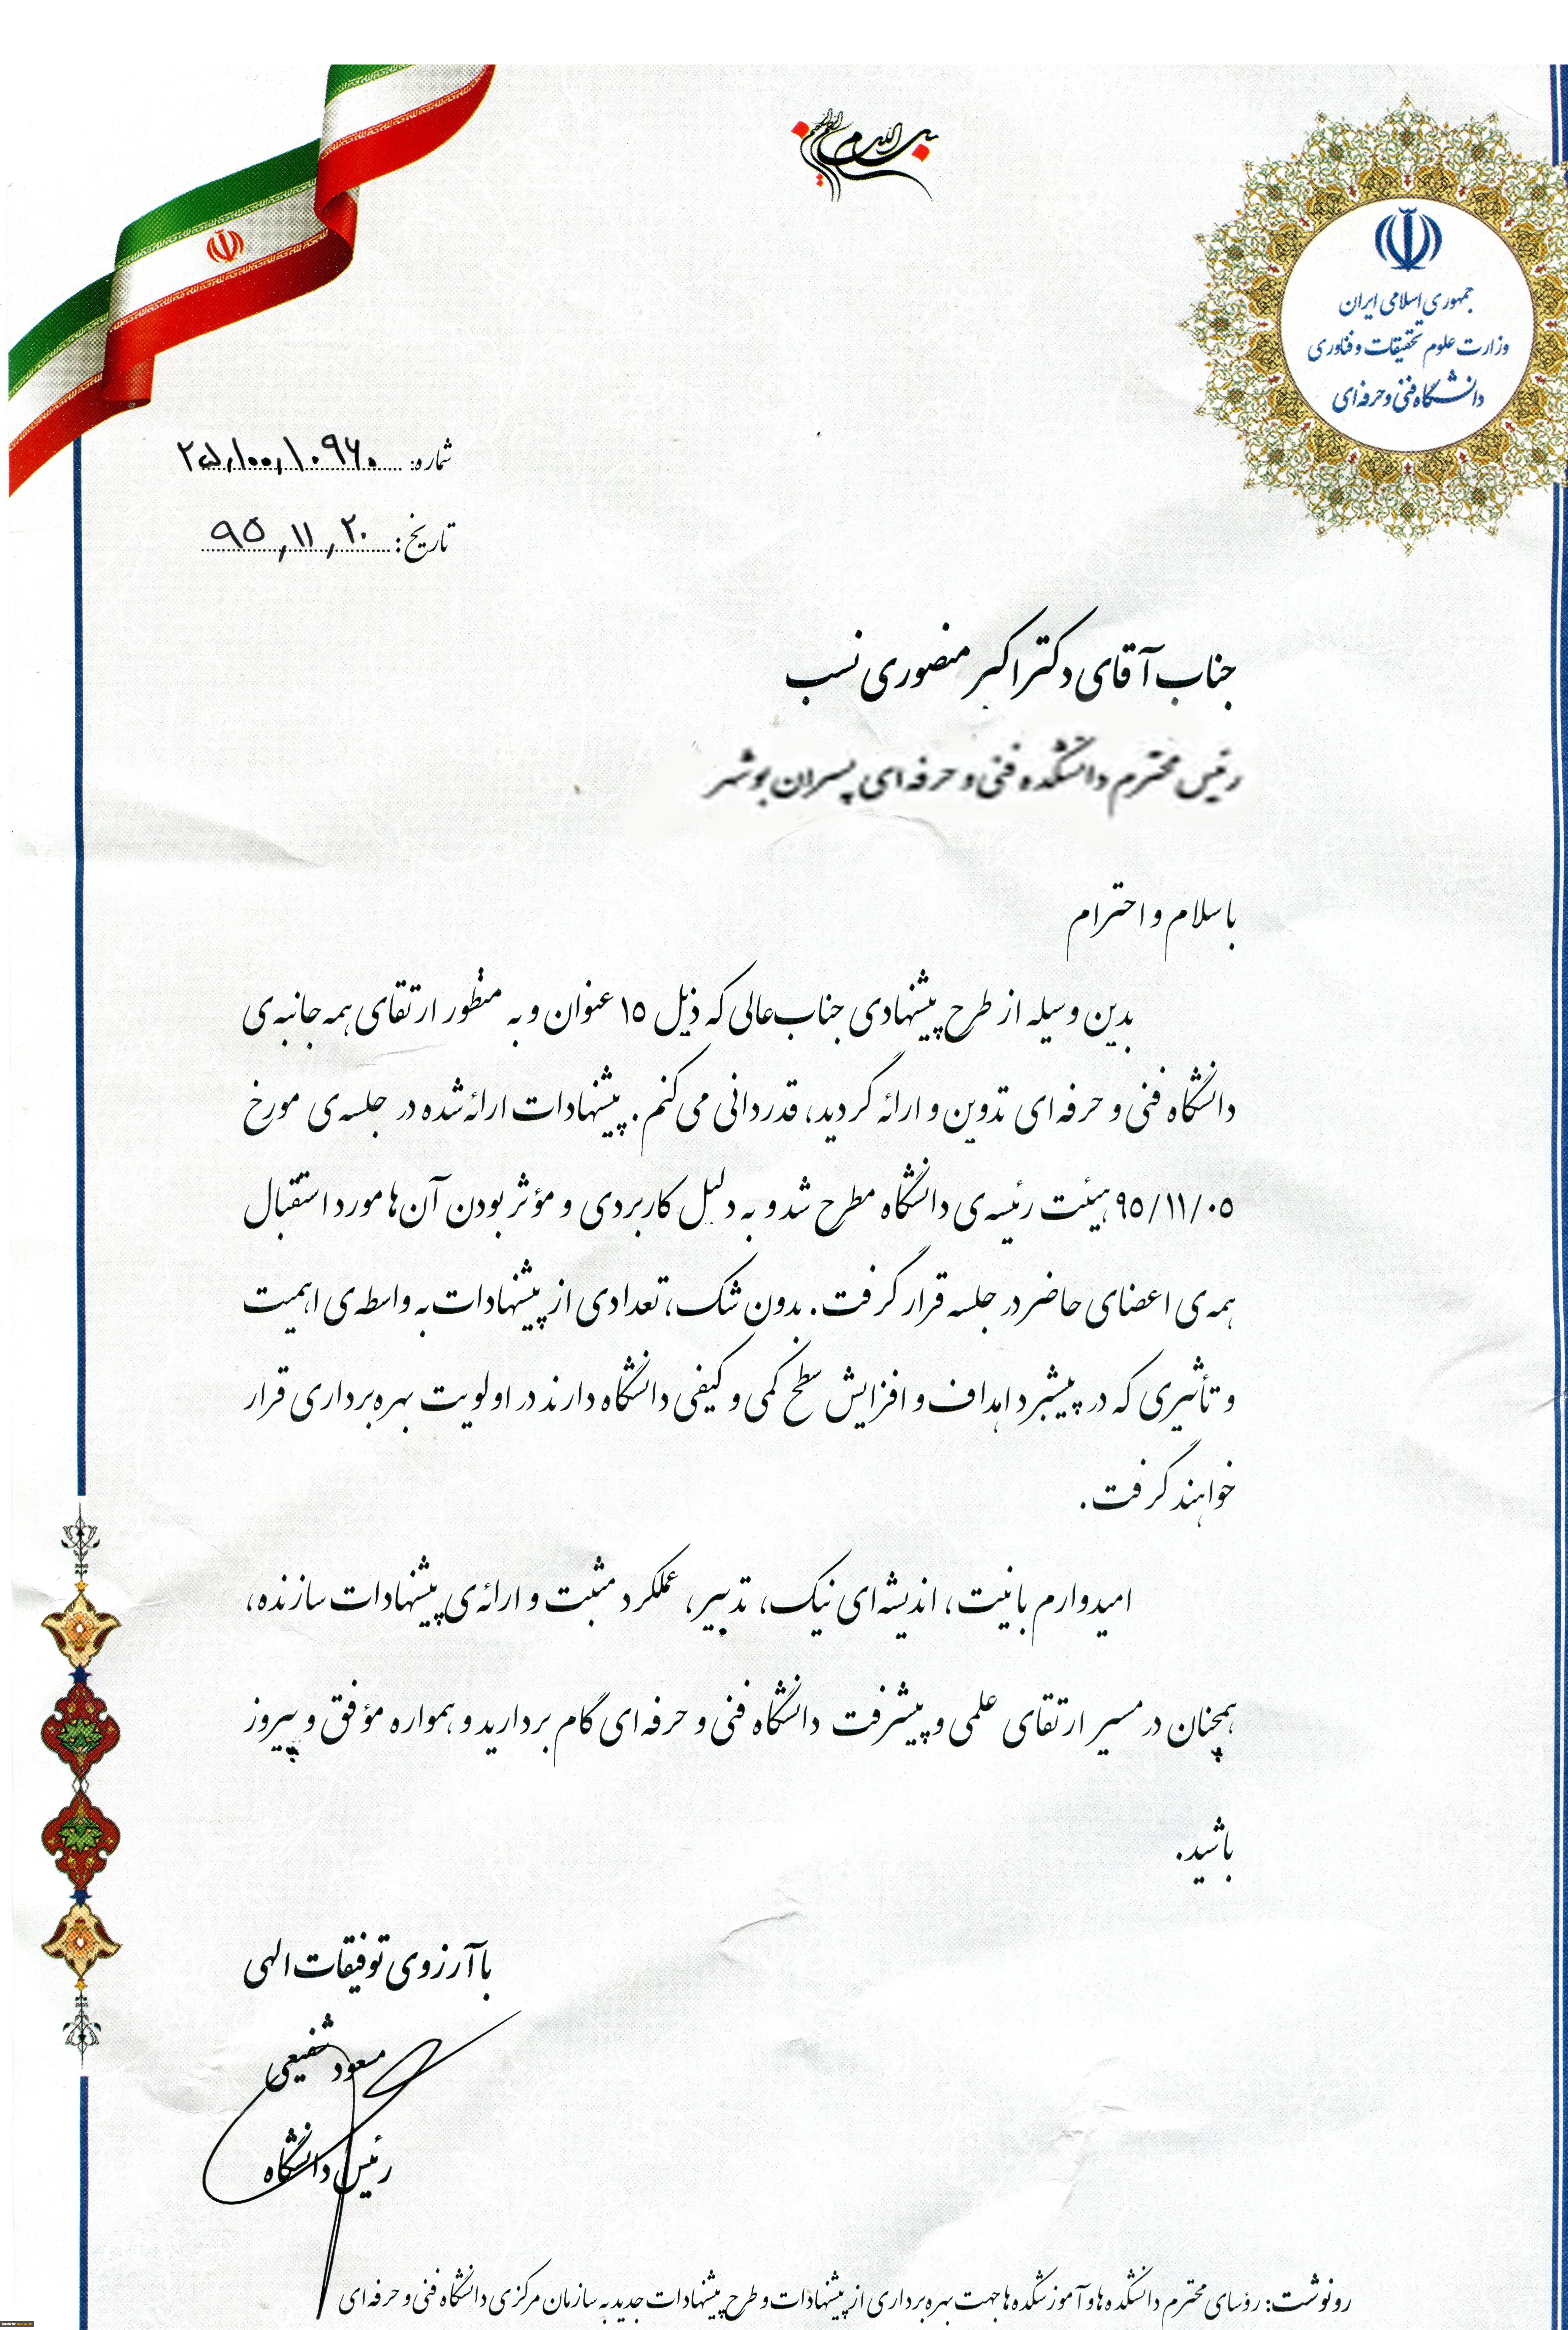 بسم الله الرحمن الرحیم
جمهوری اسلامی ایران
وزارت علوم تحقیقات و فناوری
دانشگاه فنی و حرفه‌ای
شماره: ۲۵,۱۰۰,۱۰۹۶۰
تاریخ: ۹۵,۱۱,۲۰
جناب آقای دکتر اکبر منصوری نسب
رئیس محترم دانشکده فنی و حرفه ای پسران بوشهر
با سلام و احترام
بدین وسیله از طرح پیشنهادی جناب‌عالی که ذیل ۱۵ عنوان و به منظور ارتقای همه جانبه‌ی
دانشگاه فنی و حرفه‌ای تدوین و ارائه گردید، قدردانی می‌کنم. پیشنهادات ارائه شده در جلسه‌ی مورخ
۹۵/۱۱/۰۵ هیئت رئیسه‌ی دانشگاه مطرح شد و به دلیل کاربردی و مؤثر بودن آن‌ها مورد استقبال
همه‌ی اعضای حاضر در جلسه قرار گرفت. بدون شک، تعدادی از پیشنهادات به واسطه‌ی اهمیت
و تأثیری که در پیشبرد اهداف و افزایش سطح کمی و کیفی دانشگاه دارند در اولویت بهره‌برداری قرار
خواهند گرفت.
امیدوارم با نیت، اندیشه‌ای نیک، تدبیر، عملکرد مثبت و ارائه‌ی پیشنهادات سازنده،
همچنان در مسیر ارتقای علمی و پیشرفت دانشگاه فنی و حرفه‌ای گام بردارید و همواره مؤفق و پیروز
باشید.
با آرزوی توفیقات الهی
مسعود شفیعی
رئیس دانشگاه
رونوشت: رؤسای محترم دانشکده ها و آموزشکده ها جهت بهره برداری از پیشنهادات و طرح پیشنهادات جدید به سازمان مرکزی دانشگاه فنی و حرفه ای